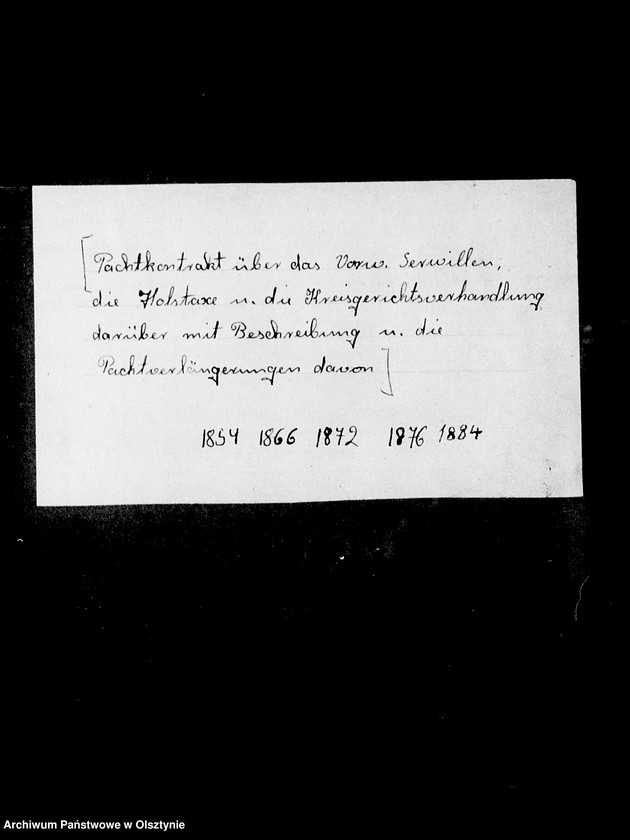 [Pachtkontrakt über das Vorw. Serwillen,
die Holstaxe u. die Kreisgerichtsverhandlung
darüber mit Beschreibung u. die
Pachtverlängerungen davon]
1854 1866 1872 1876 1884
Archiwum Państwowe w Olsztynie